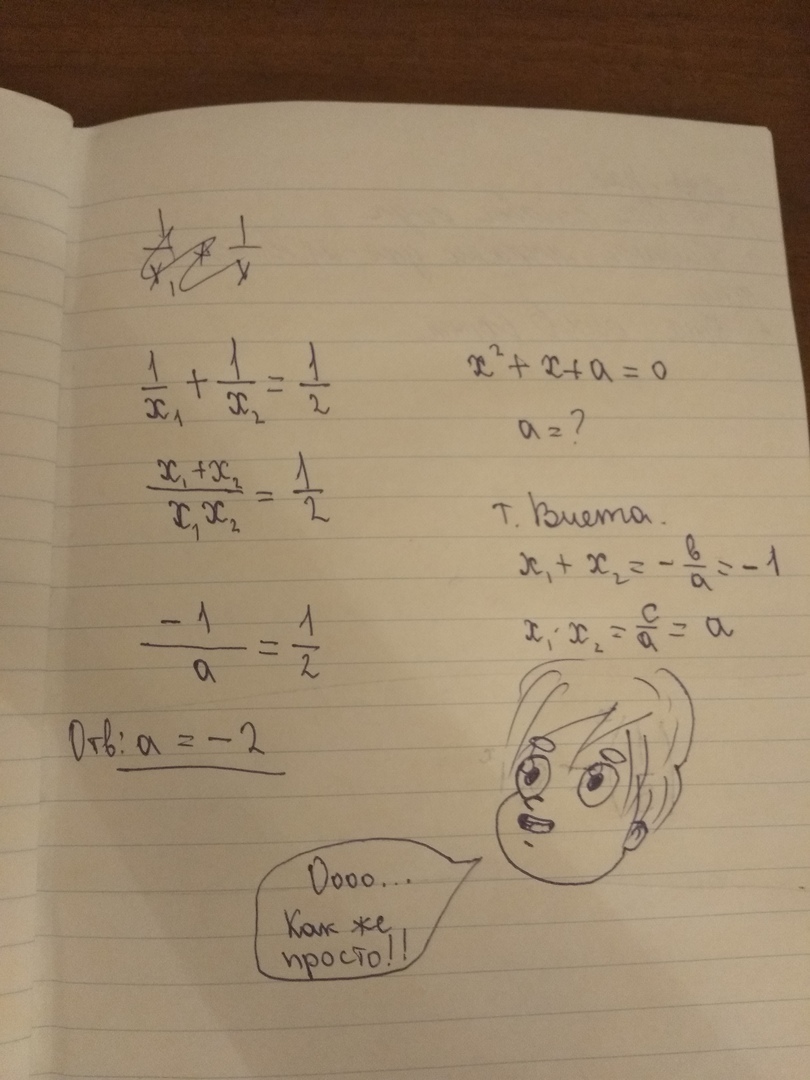 1/x₁ 1/x
1/x₁ + 1/x₂ = 1/2
(x₁+x₂)/(x₁x₂) = 1/2
-1/a = 1/2
Отв: a = -2
x² + x + a = 0
a = ?
т. Виета.
x₁ + x₂ = -в/a = -1
x₁ · x₂ = c/a = a
Оооо...
Как же
просто!!